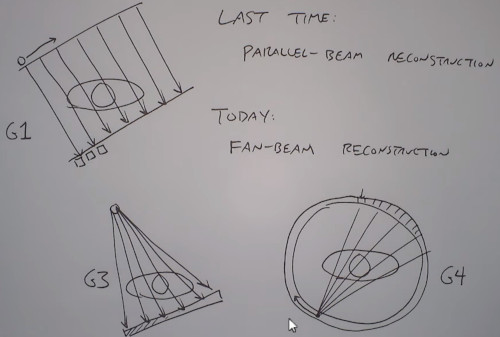 LAST TIME:
PARALLEL-BEAM RECONSTRUCTION
G1
TODAY:
FAN-BEAM RECONSTRUCTION
G3
G4